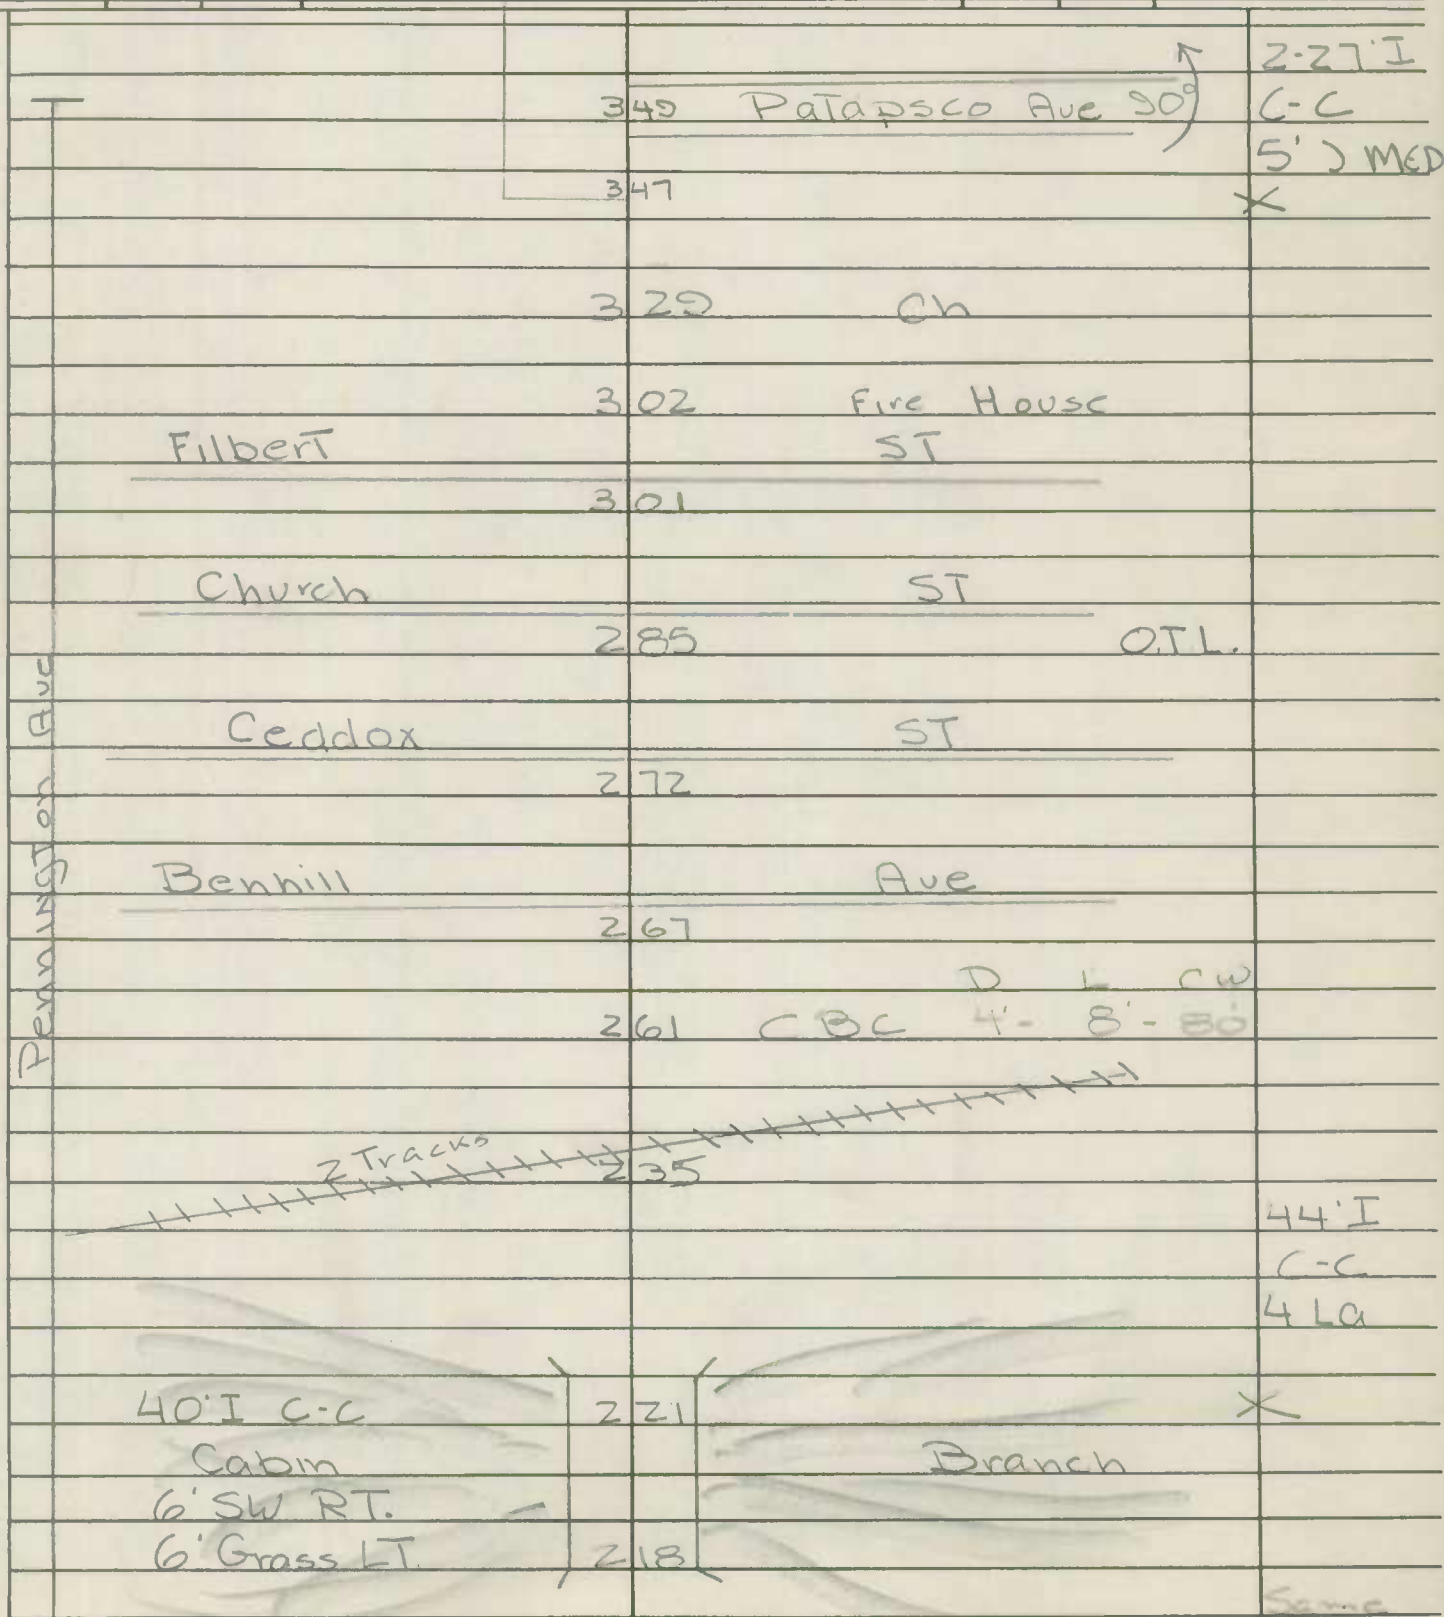 2-27'I
349 Patapsco Ave 90° C-C
5' ) MED
347
329 Ch
302 Fire House
Filbert ST
301
Church ST
285 O.T.L.
Ceddox ST
272
Benhill Ave
267
D L CW
261 CBC 4'- 8'- 80
2 Tracks
235
44'I
C-C
4 La
40'I C-C 221
Cabin Branch
6' SW RT.
6' Grass LT. 218
Same
Pennington Ave